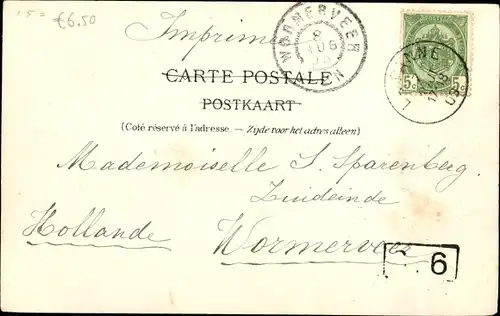 15= €6.50
Imprimé
WORMERVEER
8
AUG
03
5c 5c
LA PANNE
03
CARTE POSTALE
POSTKAART
(Coté réservé à l'adresse. — Zijde voor het adres alleen)
Mademoiselle S. Sparenberg
Zuideinde
Hollande Wormerveer
6